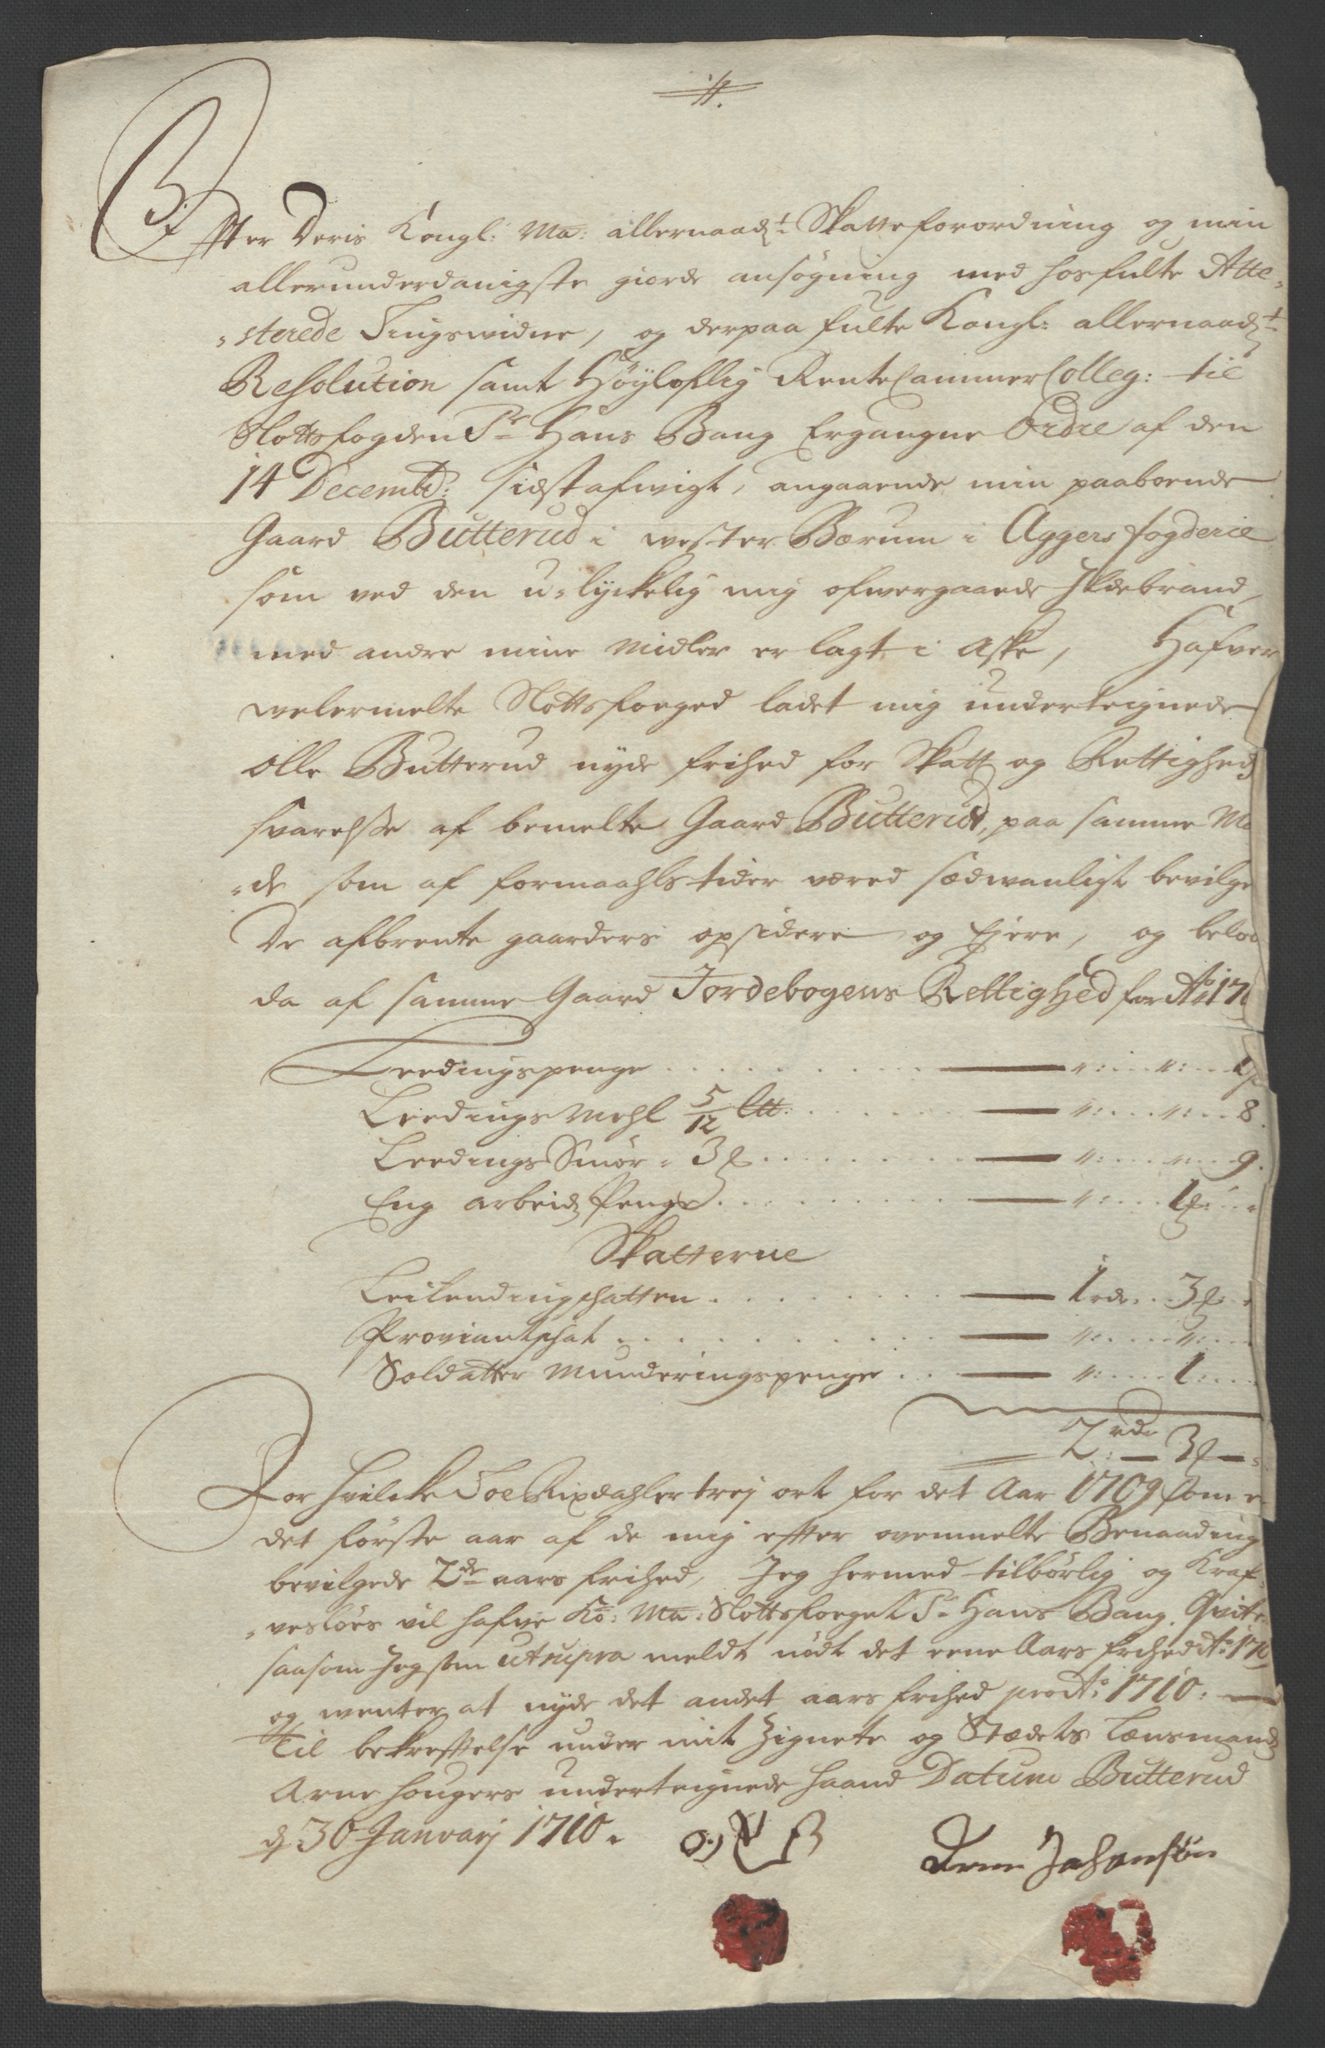 Efter Deris Kongl: Ma: allernaadst Skatteforordning og min
allerunderdanigste giorde ansøgning med hosfulte Atte-
sterede Tingswidne, og derpaa fulte Kongl: allernaadst
Resolution samt Høyloflig Rente Cammer Colleg: til
Slottsfogden Sr Hans Bang Ergangne Ordre af den
14 Decembr: sidst afwigt, angaaende min paaboende
Gaard Butterud i wester Bærum i Aggers fogderie
som ved den u-lyckelig mig ofwergaaede Ildebrand,
med andre mine Midler er lagt i Aske, Hafver
welermelte Slottsfoged ladet mig underteignede
Olle Butterud nyde frihed for Skatt og Rettigheds
svarelse af bemelte Gaard Butterud, paa samme Ma
de som af formaahls tider været sædwanligt bevilge
De afbrente gaarders opsidere og Ejere, og beløb
da af samme Gaard Jordebogens Rettighed for Ao 170
Leedingspenge 1
Leedings Mehl 5/12 Ltt: 8.
Leedings Smør 3 9.
Eng arbeids Penge 1
Skatterne
Leilendingschatten 1 rdr 3
Proviantschat
Soldatter Munderingspenge 1
2 rdr 3
For hvilcke Toe Rixdahler trej ort for det Aar 1709 som e
det første aar af de mig effter ovenmelte Benaading
bevilgede 2de aars frihed, Jeg hermed tilbørlig og Kraf-
vesløs vil hafve Ko: Ma: Slottsfoget Sr Hans Bang Qvite
saasom Jeg som ut supra meldt nødt det eene Aars frihed Ao 170
og wenter at nyde det andet aars frihed pro Ao 1710:
Til bekrefftelse under mit Zignete og Stædets Lænsmand
Arne Hougers underteignede haand Datum Butterud
d 30 Januarj 1710.
O B
Arne Johansøn